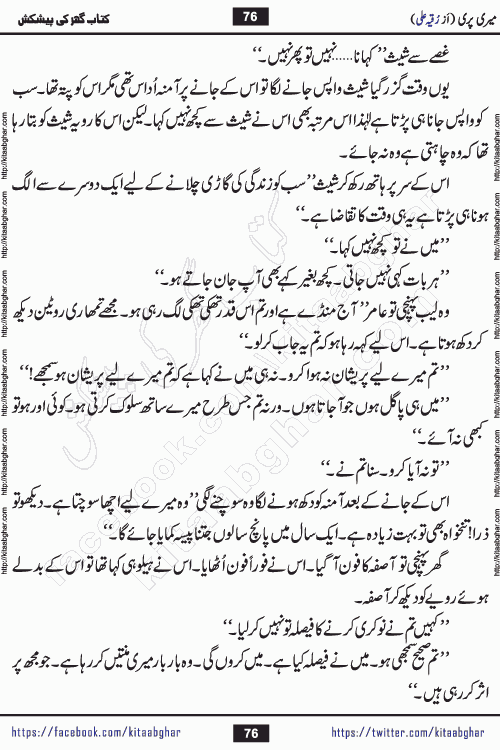 میری پری (از رُقیہ علی)
76
کتاب گھر کی پیشکش
غصے سے شیث ’’کہا نا.....نہیں تو پھر نہیں۔‘‘
یوں وقت گزر گیا شیث واپس جانے لگا تو اس کے جانے پر آمنہ اُداس تھی مگر اس کو پتہ تھا۔ سب
کو واپس جانا ہی پڑتا ہے لہٰذا اس مرتبہ بھی اس نے شیث سے کچھ نہیں کہا۔ لیکن اس کا رویہ شیث کو بتا رہا
تھا کہ وہ چاہتی ہے وہ نہ جائے۔
اس کے سر پر ہاتھ رکھ کر شیث ’’سب کو زندگی کی گاڑی چلانے کے لیے ایک دوسرے سے الگ
ہونا ہی پڑتا ہے یہ ہی وقت کا تقاضا ہے۔‘‘
’’میں نے تو کچھ نہیں کہا۔‘‘
’’ہر بات کہی نہیں جاتی۔ کچھ بغیر کہے بھی آپ جان جاتے ہو۔‘‘
وہ لیب پہنچی تو عامر ’’آج منڈے ہے اور تم اس قدر تھکی تھکی لگ رہی ہو۔ مجھے تمھاری روٹین دیکھ
کر دکھ ہوتا ہے۔ اس لیے کہہ رہا ہو کہ تم یہ جاب کر لو۔‘‘
’’تم میرے لیے پریشان نہ ہوا کرو۔ نہ ہی میں نے کہا ہے کہ تم میرے لیے پریشان ہو سمجھے!‘‘
’’میں ہی پاگل ہوں جو آ جاتا ہوں۔ ورنہ تم جس طرح میرے ساتھ سلوک کرتی ہو۔ کوئی اور ہو تو
کبھی نہ آئے۔‘‘
’’تو نہ آیا کرو۔ سنا تم نے۔‘‘
اس کے جانے کے بعد آمنہ کو دکھ ہونے لگا وہ سوچنے لگی ’’وہ میرے لیے اچھا سوچتا ہے۔ دیکھو تو
ذرا! تنخواہ بھی تو بہت زیادہ ہے۔ ایک سال میں پانچ سالوں جتنا پیسہ کمایا جائے گا۔‘‘
گھر پہنچی تو آصفہ کا فون آ گیا۔ اس نے فوراً فون اُٹھایا۔ اس نے ہیلو ہی کہا تھا تو اس کے بدلے
ہوئے رویے کو دیکھ کر آصفہ۔
’’کہیں تم نے نوکری کرنے کا فیصلہ تو نہیں کر لیا۔‘‘
’’تم صحیح سمجھی ہو۔ میں نے فیصلہ کیا ہے۔ میں کروں گی۔ وہ بار بار میری منتیں کر رہا ہے۔ جو مجھ پر
اثر کر رہی ہیں۔‘‘
https://facebook.com/kitaabghar
76
https://twitter.com/kitaabghar
http://kitaabghar.com
http://kitaabghar.com
http://kitaabghar.com
http://kitaabghar.com
http://kitaabghar.com
http://kitaabghar.com
کتاب گھر کی پیشکش
kitaabghar.com
facebook.com/kitaabghar